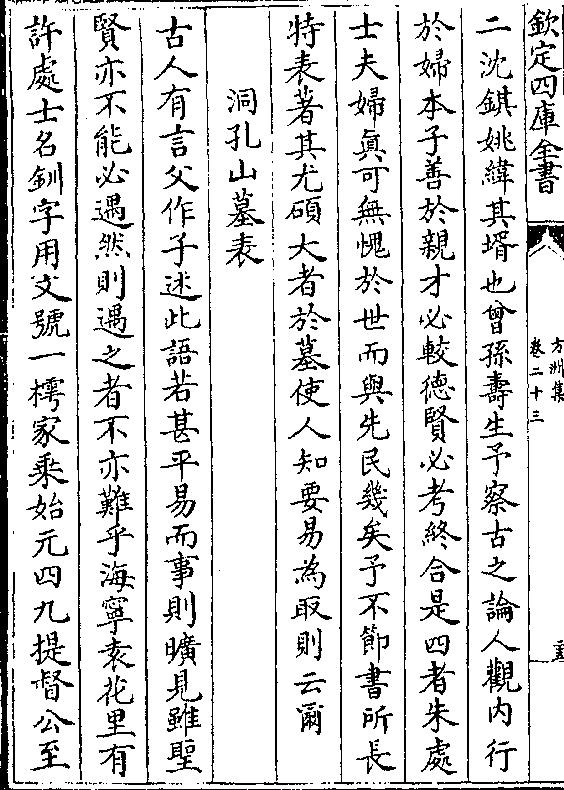 欽定四庫全書
方洲集
卷二十三
二沈錤姚緯其壻也曾孫壽生予察古之論人觀内行
於婦本子善於親才必較德賢必考終合是四者朱處
士夫婦真可無愧於世而與先民幾矣予不節書所長
特表著其尤碩大者於墓使人知要易為取則云爾
洞孔山墓表
古人有言父作子述此語若甚平易而事則曠見雖聖
賢亦不能必遇然則遇之者不亦難乎海寧袁花里有
許處士名釧字用文號一樗家乘始元四九提督公至